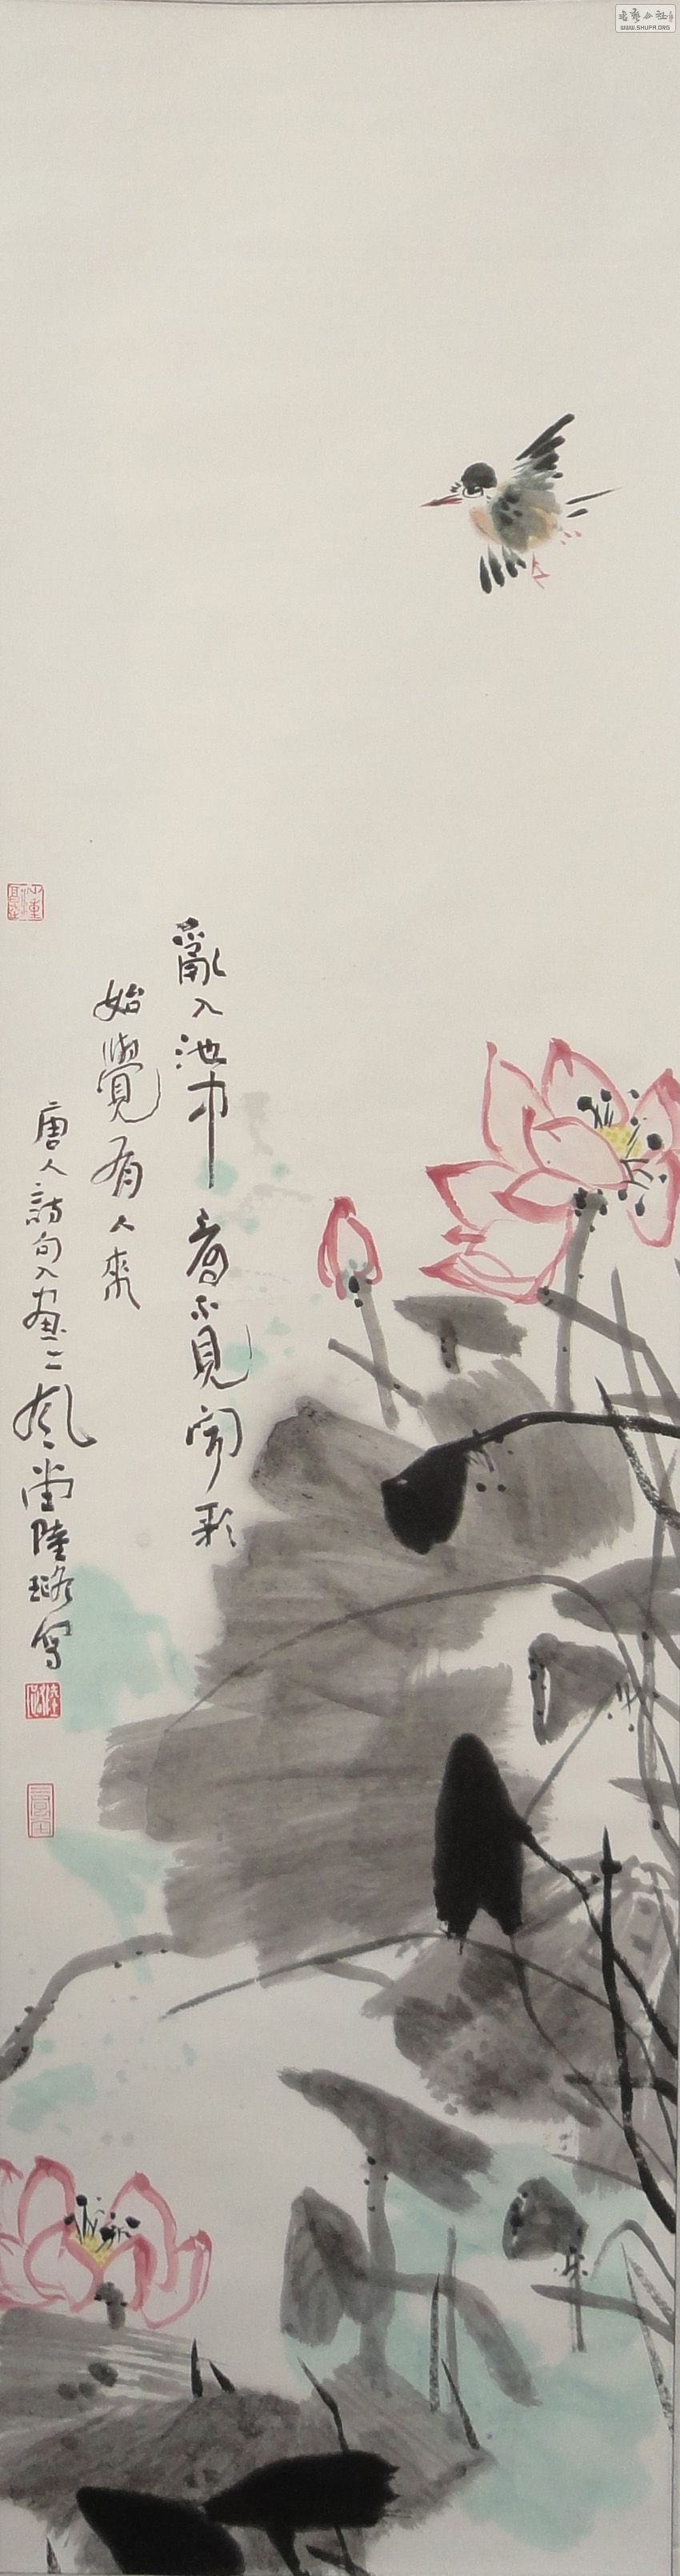 亂入池中看不見聞歌
始覺有人來
唐人詩句入畫二風堂陸璐寫
WWW.SHUFA.ORG